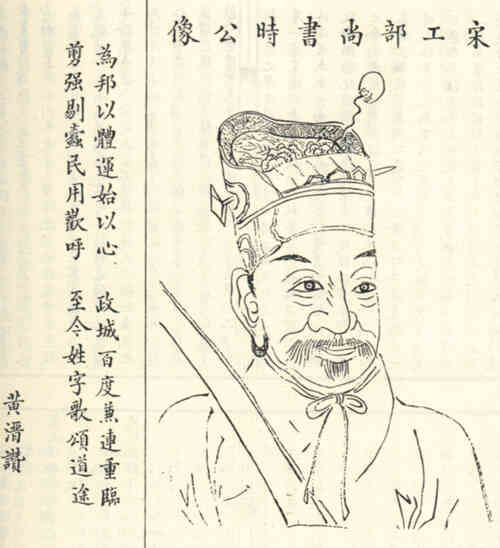 宋工部尚書時公像
為邦以體運始以心 政城百度兼連重臨
剪强剔蠹民用歡呼 至今姓字歌頌道途
黃溍讚